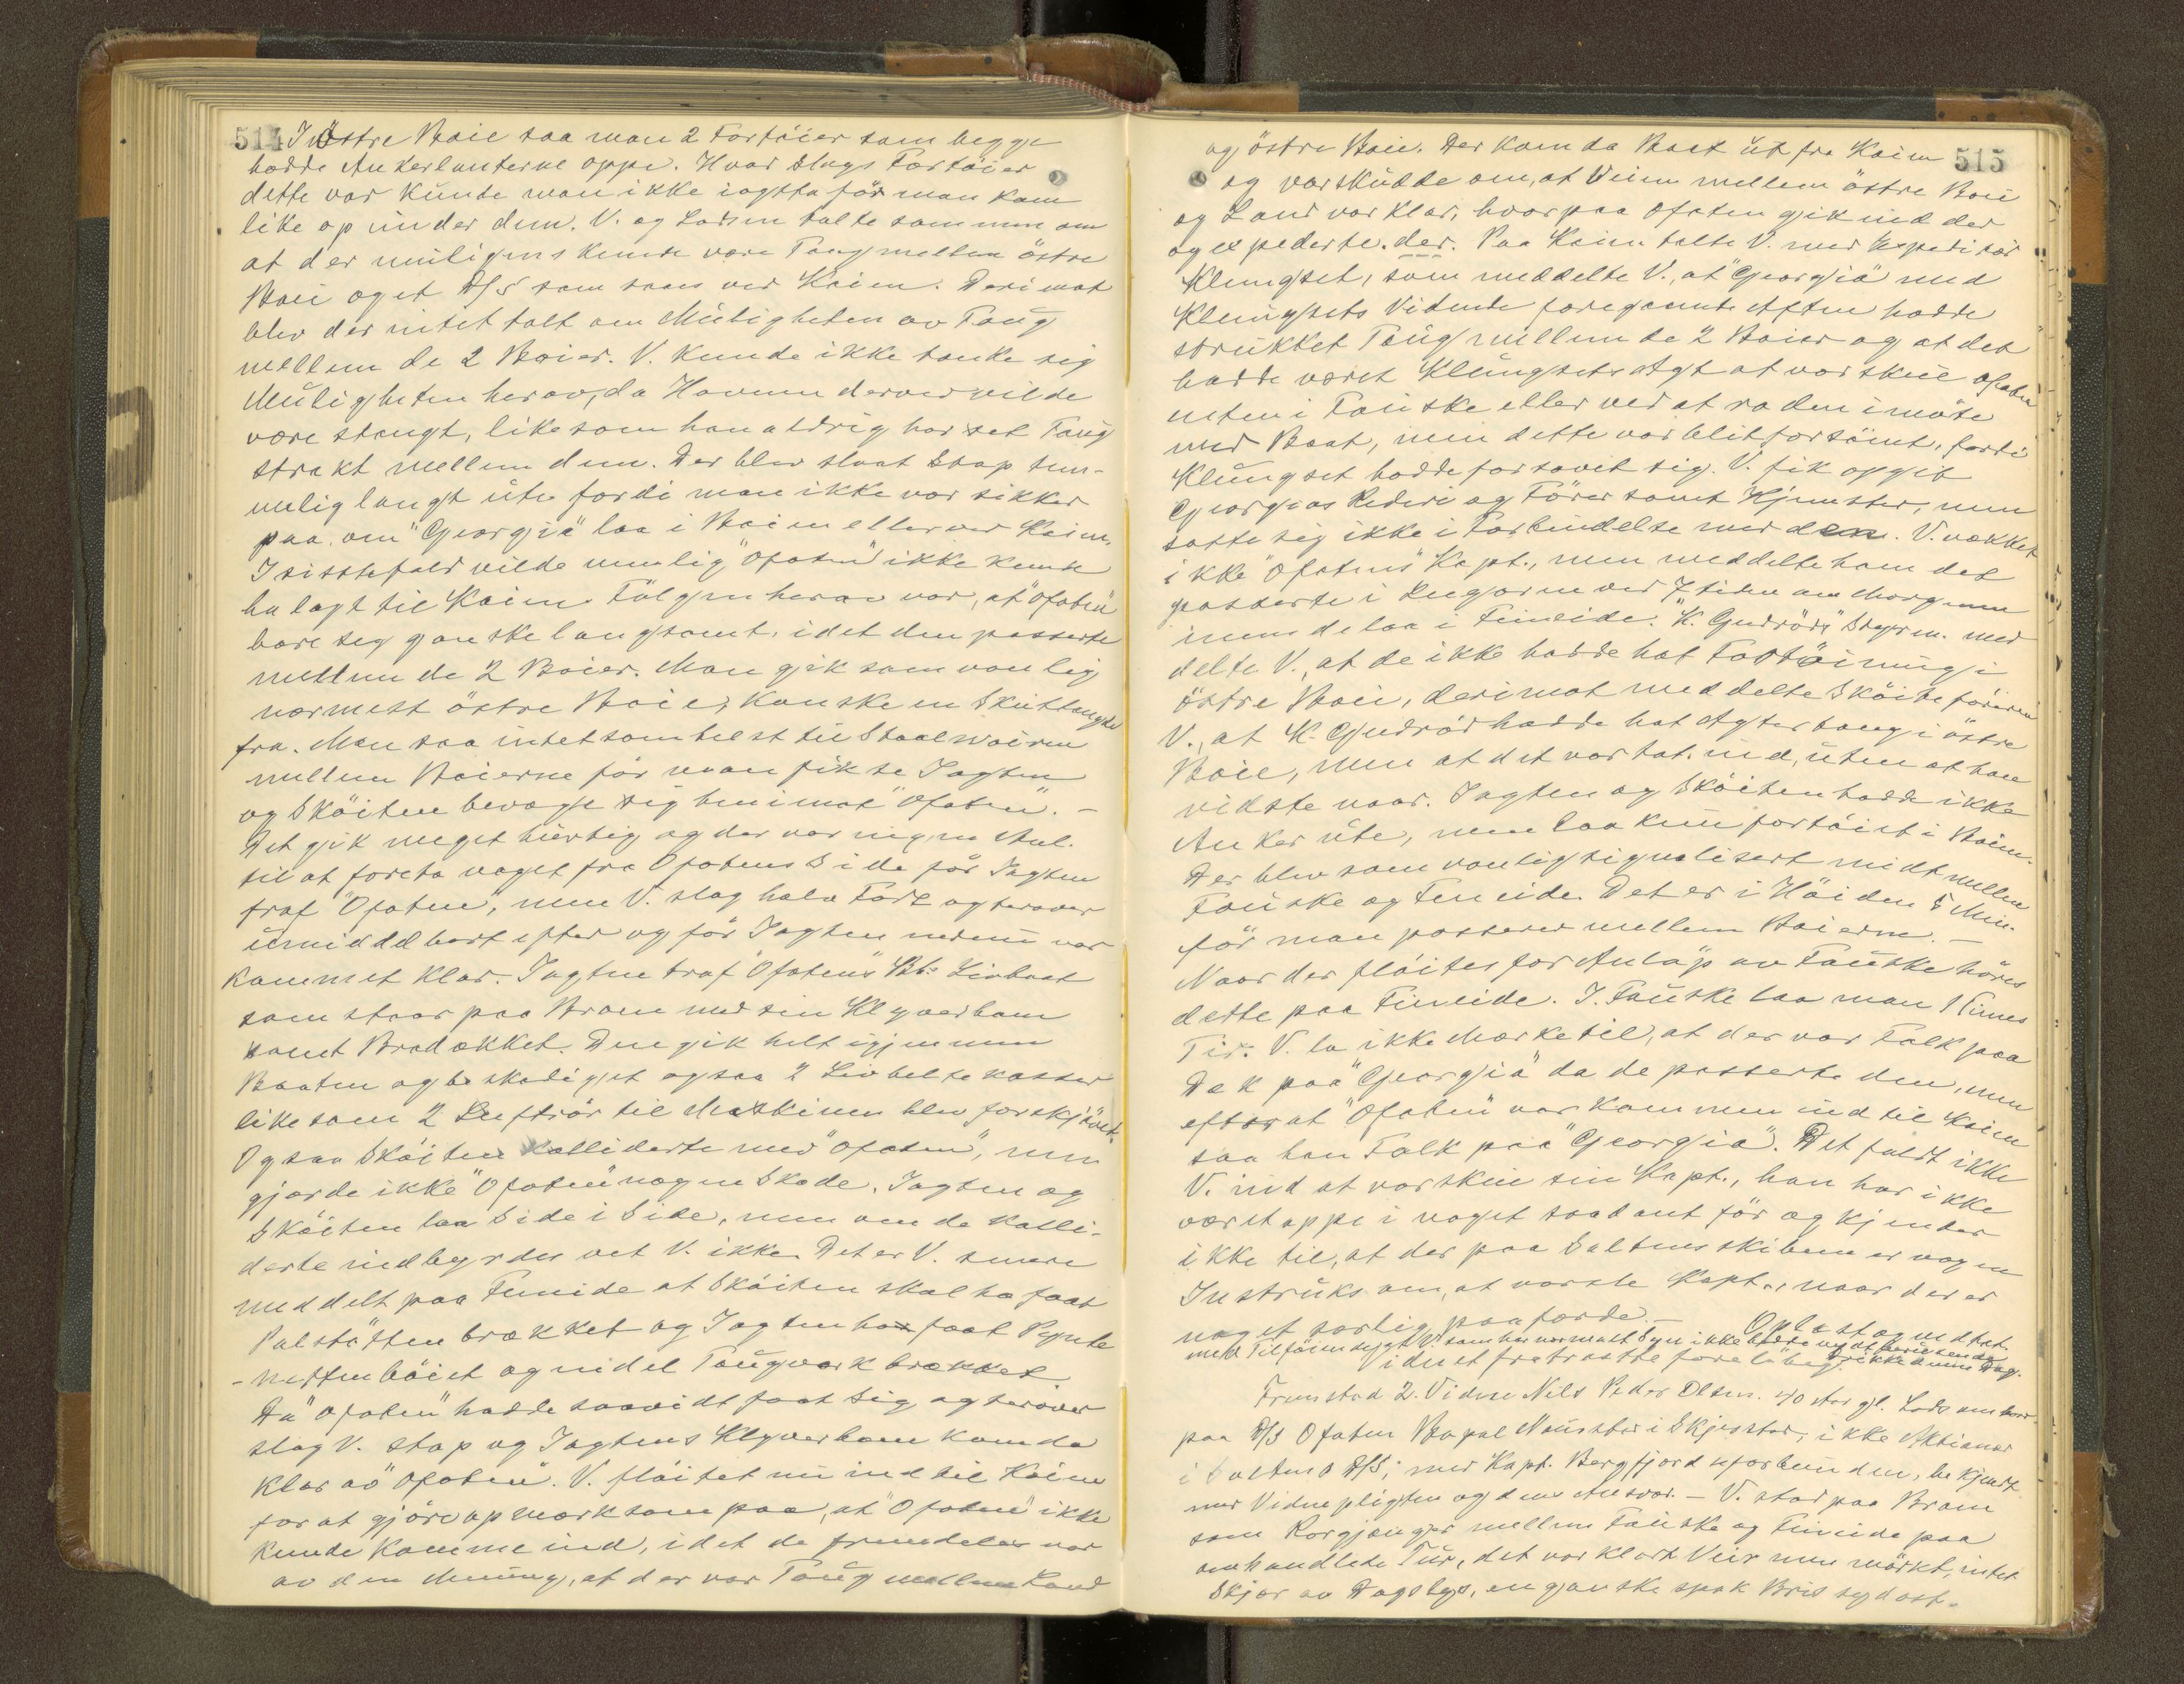 514 I Östre Baie saa man 2 Fortöier som begge
hadde Ankerlanterne oppe. Hvad Slags Fartöier
dette var kunde man ikke iagtta för man kom
like op under dem. V. og Lodsen talte sammen om
at der muligens kunde være Taug mellem östre
Baie og et D/S som saaes ved Kaien. Derimot
blev der intet talt om Muligheten av Taug
mellem de 2 Baier. V. kunde ikke tænke sig
Muligheten herav, da Havnen derved vilde
være stængt, likesom han aldrig har set Taug
strakt mellem dem. Der blev slaat Stop tem-
melig langt ute fordi man ikke var sikker
paa om "Georgia" laa i Baien eller ved Kaien.
I sidstefald vilde nemlig "Ofoten" ikke kunde
ha lagt til Kaien. Fölgen herav var, at "Ofoten"
bare seg ganske langsomt, idet den passerte
mellem de 2 Baier. Man gik som vanlig
nærmest östre Baie, kanske en Skutlængde
fra. Man saa intetsomhelst til Staalwairen
mellem Baierne för man fik se Jagten
og Sköiten bevæge sig henimot "Ofoten". -
Det gik meget hurtig og der var ingen Anl.
til at foreta noget fra Ofotens Side för Jagten
traf "Ofoten", men V. slog halv Fart agterover
umiddelbart efter og för Jagten endnu var
kommet klar. Jagten traf "Ofotens" Bb. Livbaat
som staar paa Broen med sin Klyverbom
samt Brodækket. Den gik helt igjennem
Baaten og beskadiget ogsaa 2 Livbeltekasser
likesom 2 Luftrör til Maskinen blev forskjövet.
Ogsaa Sköiten kolliderte med "Ofoten", men
gjorde ikke "Ofoten" nogen Skade. Jagten og
Sköiten laa Side i Side, men om de kolli-
derte indbyrdes vet V. ikke. Det er V. senere
meddelt paa Fineide at Sköiten skal ha faat
Palstötten brækket og Jagten ha faat Pynte
-netten böiet og endel Taugværk brækket
Da "Ofoten" hadde saavidt faat Sig agterover
slog V. stop og Jagtens Klyverbom kom da
klar av "Ofoten". V. flöitet nu ind til Kaien
for at gjöre opmerksom paa, at "Ofoten" ikke
kunde komme ind, idet de fremdeles var
av den Mening, at der var Taug mellem Land
og östre Baie. Der kom da Baat ut fra Kaien 515
og varskudde om, at Veien mellem östre Baie
og Land var klar, hvorpaa Ofoten gik ind der
og expederte der. Paa Kaien talte V. med Expeditör
Klungset, som meddelte V., at "Georgia" med
Klungsets Vidende foregaaende Aften hadde
strukket Taug mellem de 2 Baier og at det
hadde været Klungsets Agt at varskue Ofoten
enten i Fauske eller ved at ro den imöte
med Baat, men dette var blit forsömt, fordi
Klungset hadde forsovet sig. V. fik opgit
Georgias Rederi og Förer samt Hjemsted, men
satte sig ikke i Forbindelse med den. V. vækket
ikke "Ofotens" Kapt., men meddelte ham det
passerte i Lugaren ved 7 tiden om Morgenen
imens de laa i Fineide. "K. Gudröds" Styrm. med
delte V., at de ikke hadde hat Fortöining i
östre Baie, derimot meddelte Sköiteföreren
V., at K. Gudröd hadde hat Agtertaug i östre
Baie, men at det var tat ind, uten at han
vidste naar. Jagten og Sköiten hadde ikke
Anker ute, men laa kun fortöiet i Baien.
Der blev som vanlig signalisert midt mellem
Fauske og Fineide. Det er i Höiden 5 Min.
för man passerer mellem Baierne. -
Naar der flöites for Anlöp av Fauske höres
dette paa Fineide. I Fauske laa man 1 Times
Tid. V. la ikke Mærke til, at der var Folk paa
Dek paa "Georgia" da de passerte den, men
efterat "Ofoten" var kommen ind til Kaien
saa han Folk paa "Georgia". Det faldt ikke
V. ind at varskue sin Kapt., han har ikke
været oppe i noget saadant för og kjender
ikke til, at der paa Saltensskibene er nogen
Instruks om, at varsle Kapt., naar der er
noget særlig paafærde. - Oplæst og vedtat.
med Tilföiende V. som har normalt Syn ikke
idnet fratraadte foreløbig.
Fremstod 2. Vidne Nels Peder Olsen. 40 Aar gl. Lods ombord
paa D/S Ofoten Bopæl Naustbo i Skjerstad, ikke Aktionær
i Saltens D/S; med Kapt. Bergfjord uforbunden, bekjendt
med Vidnepligten og dens Ansvar. - V. stod paa Broen
som Rorgjænger mellem Fauske og Fineide paa
omhandlede Tur, det var klart Veir men mörkt, intet
Skjær av Dagslys, en ganske spak Bris sydost.